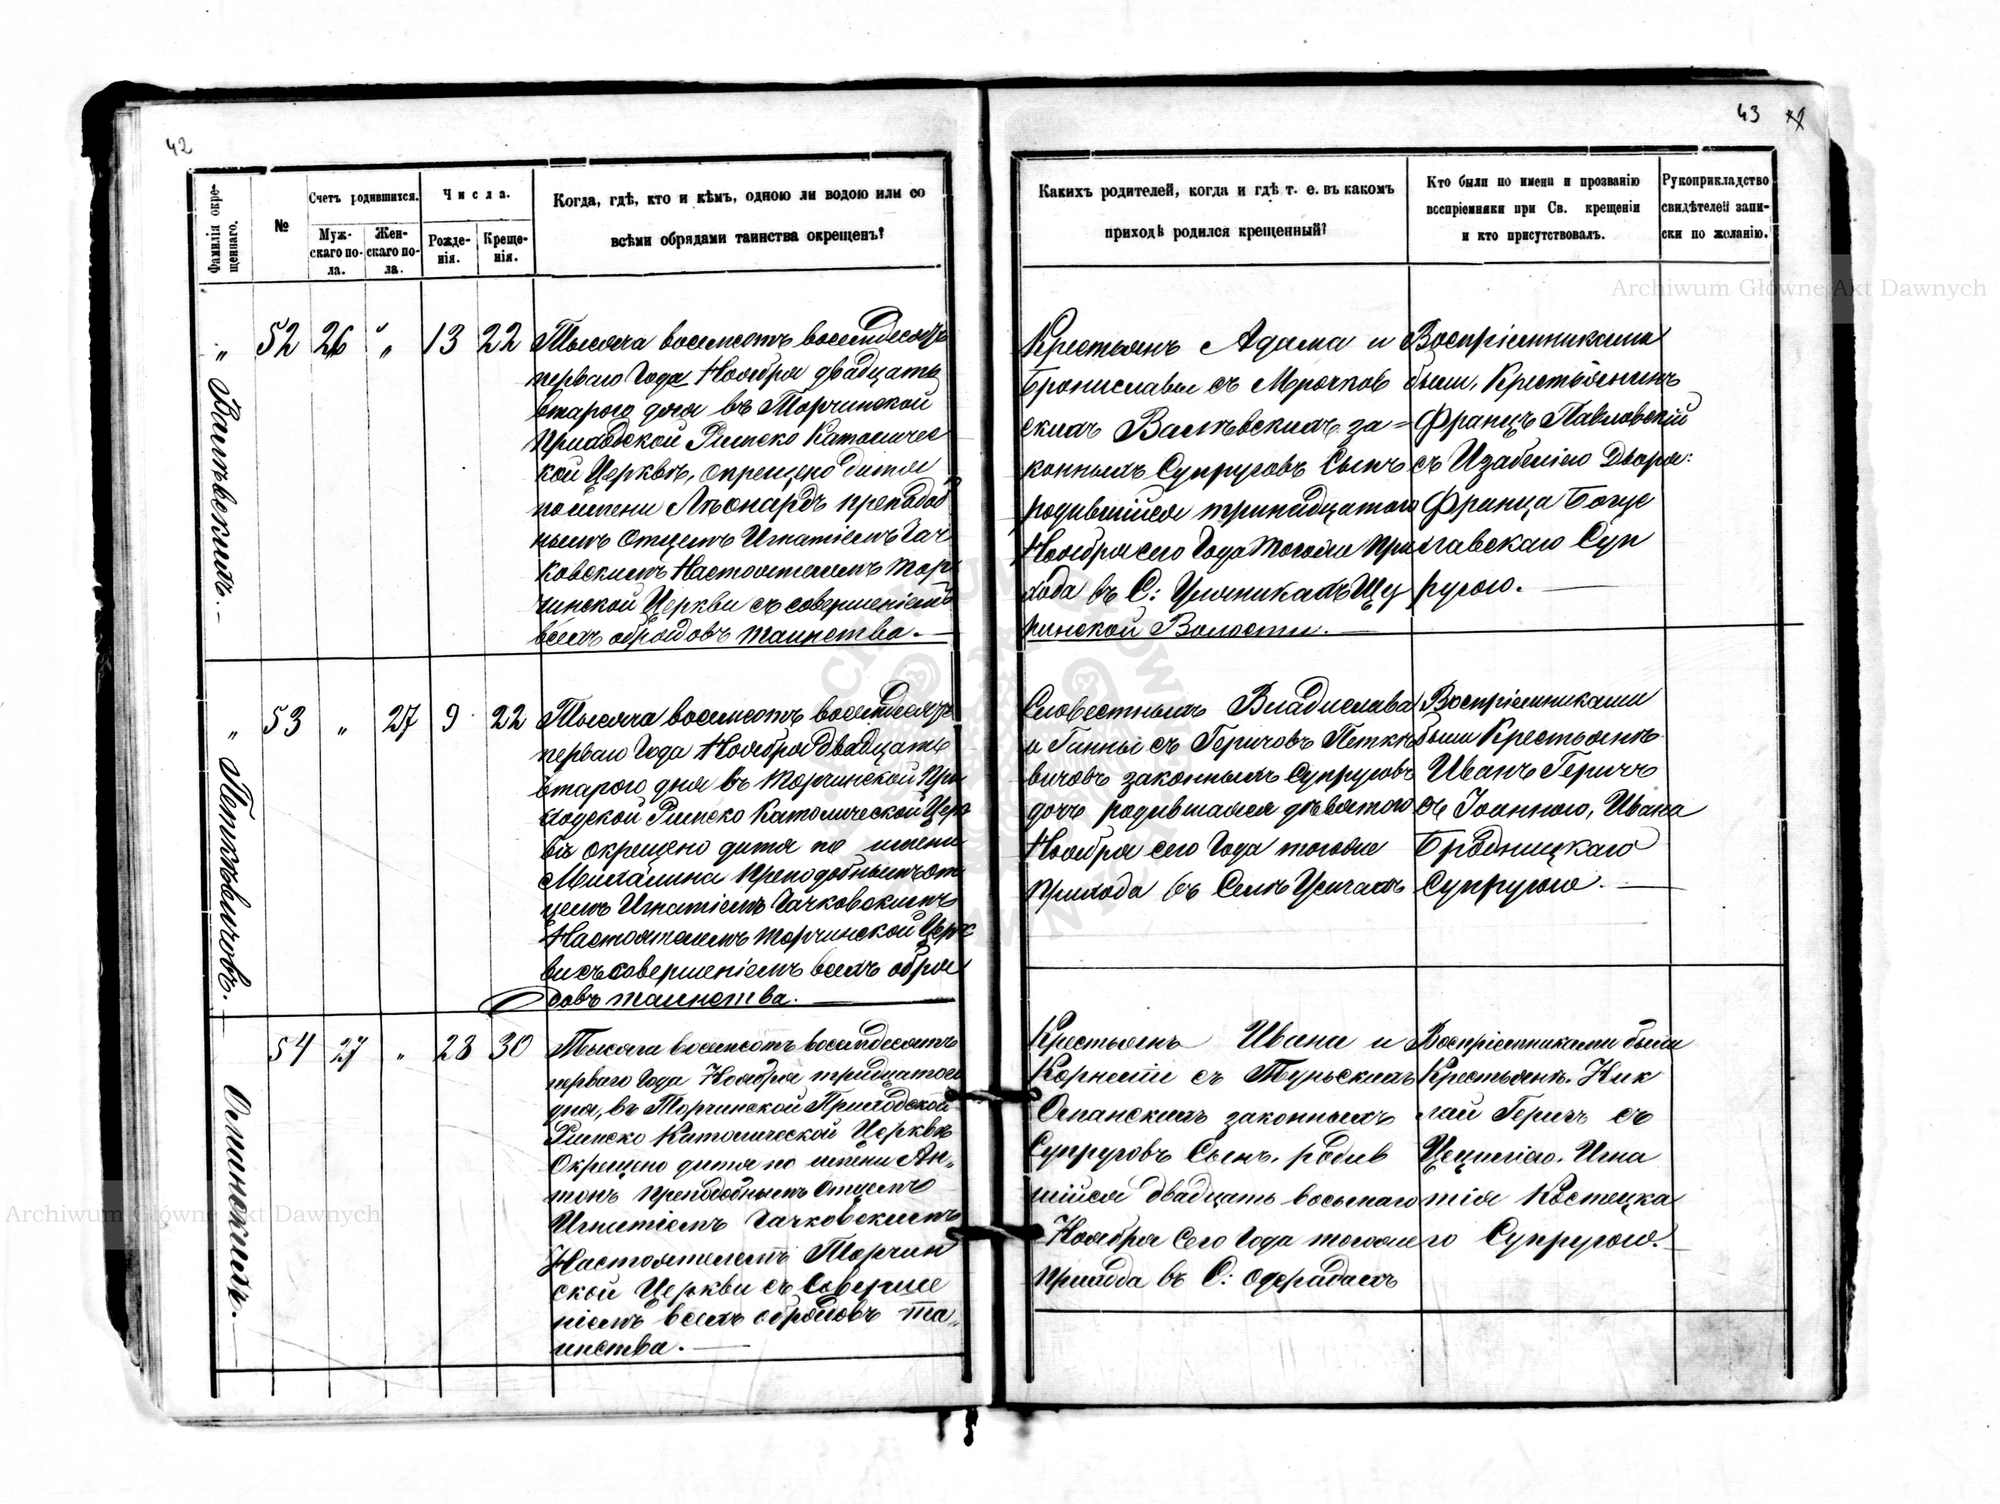 42
Фамилія окре-
щеннаго.
№
Счетъ родившихся.
Муж-
скаго по-
ла.
Жен-
скаго по-
ла.
Числа.
Рожде-
нія.
Креще-
нія.
Когда, гдѣ, кто и кѣмъ, одною ли водою или со
всѣми обрядами таинства окрещенъ?
" 
52 26 " 13 22
Тысяча восемсотъ восемдесятъ
перваго Года Ноября двадцать
втараго дня въ Торчинской
Приходской Римско Католичес
кой Церквѣ, окрещено дитя
по имени Леонардъ преподоб
нымъ Отцемъ Игнатіемъ Гач
ковскимъ Настоятелемъ Тор
чинской Церкви съ совершеніемъ
всехъ обрядовъ таинства. —
" Петкѣвичовъ. —
53 " 27 9 22
Тысяча восемсотъ восемдесятъ
перваго Года Ноября двадцать
втараго дня въ Торчинской При
ходской Римско Католической Церк
вѣ окрещено дитя по имени
Михалина Преподобнымъ От
цемъ Игнатіемъ Гачковскимъ
Настоятелемъ Торчинской Церк
ви съ совершеніемъ всехъ обря
довъ таинства. —
54 27 " 28 30
Тысяча восемсотъ восемдесятъ
перваго Года Ноября тридцатого
дня, въ Торчинской Приходской
Римско Католической Церквѣ
Окрещено дитя по имени Ан„
тонъ Преподобнымъ Отцемъ
Игнатіемъ Гачковскимъ
Настоятелемъ Торчин
ской Церкви съ Соверше
ніемъ всехъ обрядовъ та„
инства. —
43
Какихъ родителей, когда и гдѣ т. е. въ какомъ
приходѣ родился крещенный?
Кто были по имени и прозванію
воспріемники при Св. крещеніи
и кто присутствовалъ.
Рукоприкладство
свидѣтелей запи-
ски по желанію.
Крестьянъ Адама и
Брониславы съ Мрочков
скихъ законныхъ Супруговъ Сынъ
родившійся тринадцатого
Ноября сего Года тогоже При
хода въ С: Щу
ринской Волости. —
Воспріемниками
были, Крестьянинъ
Францъ Павловскій
съ Изабеліею Дворя:
Франца Богу
славскаго Суп
ругою. —
Владислава
и Ганны съ Геричовъ Петкѣ
вичовъ законныхъ Супруговъ
дочь родившаяся девятого
Ноября сего Года тогоже
Прихода въ Селѣ Усичахъ
Воспріемниками
были Крестьянѣ
Иванъ Геричъ
съ Іоанною, Ивана
Бродницкаго
Супругою. —
Крестьянъ Ивана и
Корнелии съ Турьскихъ
законныхъ
Супруговъ Сынъ, родив
шійся двадцать восьмаго
Ноября Сего Года тогоже
Прихода въ С: Одерадахъ
Воспріемниками были
Крестьянѣ. Ник
лай Геричъ съ
Цециліею. Игна
тія Костецка
го Супругою. —
Archiwum Główne Akt Dawnych
Archiwum Główne Akt Dawnych